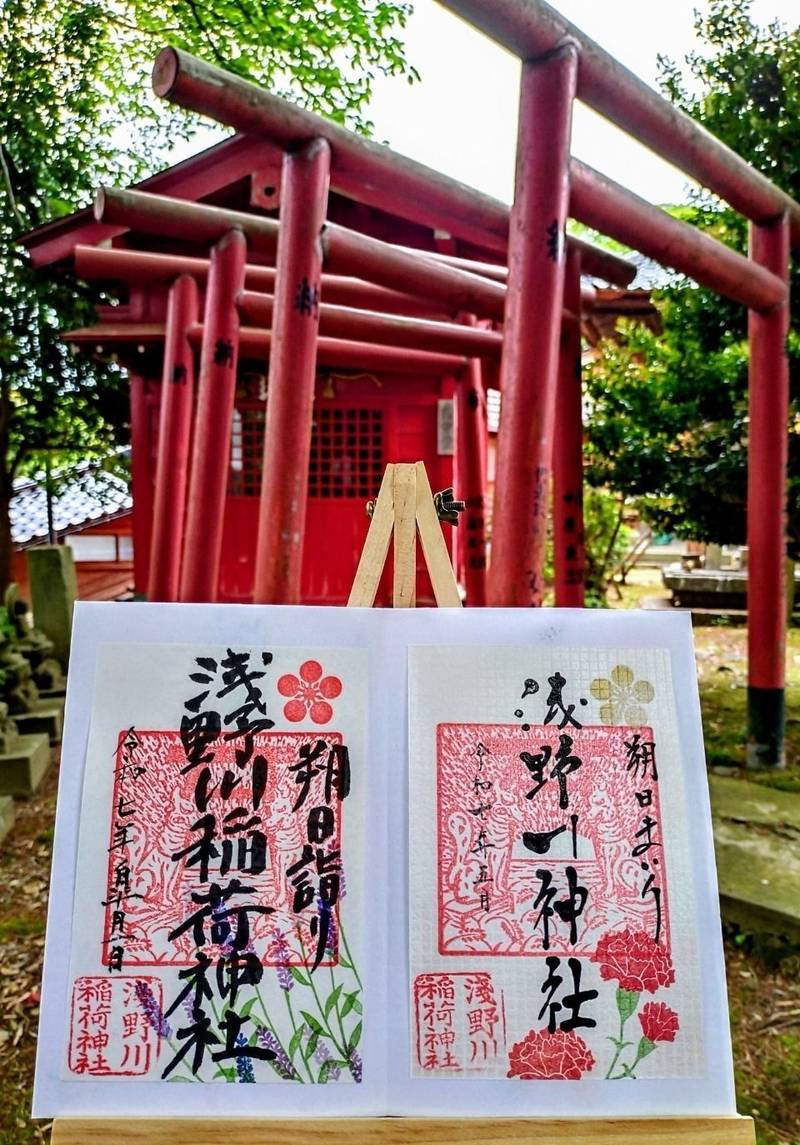 納
納
納
朔日詣り
浅野川稲荷神社
令和七年五月一日
淺野川
稲荷神社
朔日まいり
浅野川神社
令和七年五月
淺野川
稲荷神社